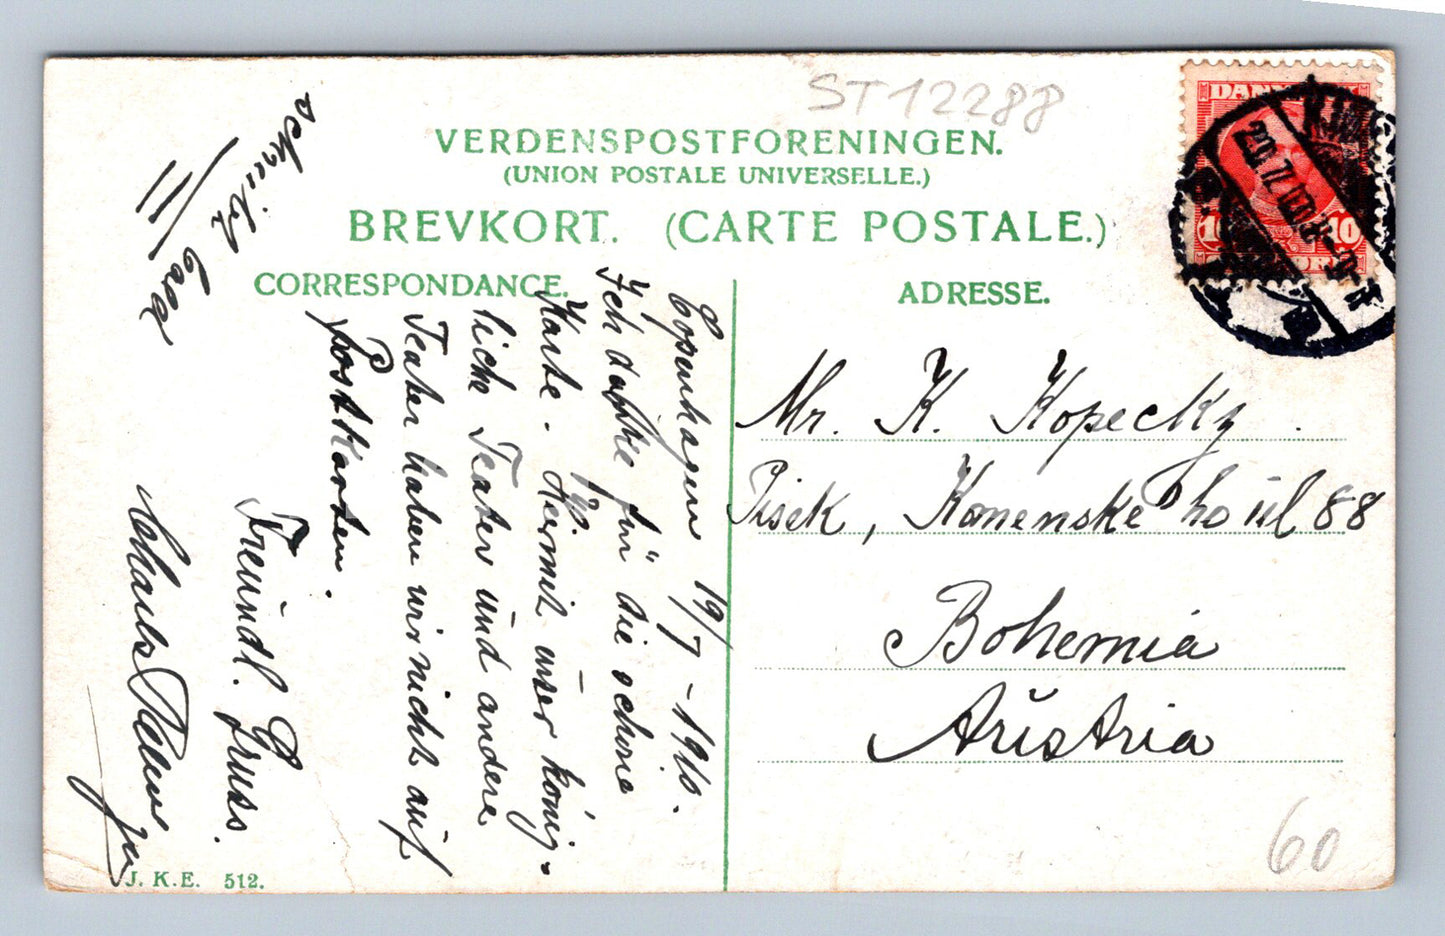 ST12288
VERDENSPOSTFORENINGEN.
(UNION POSTALE UNIVERSELLE.)
BREVKORT. (CARTE POSTALE.)
CORRESPONDANCE.
ADRESSE.
DANMARK
10 10
Copenhagen 19/7 - 1910.
Ich danke für die schöne
Karte. - Hiermit unser könig-
liche Teater und andere
Teater haben wir nicht auf
Postkarten.
Freundl. Gruss.
Charles
jun
schreibt bald
Mr. K. Kopecky.
Pisek, Komenskeho ul 88
Bohemia
Austria
J. K. E. 512.
60